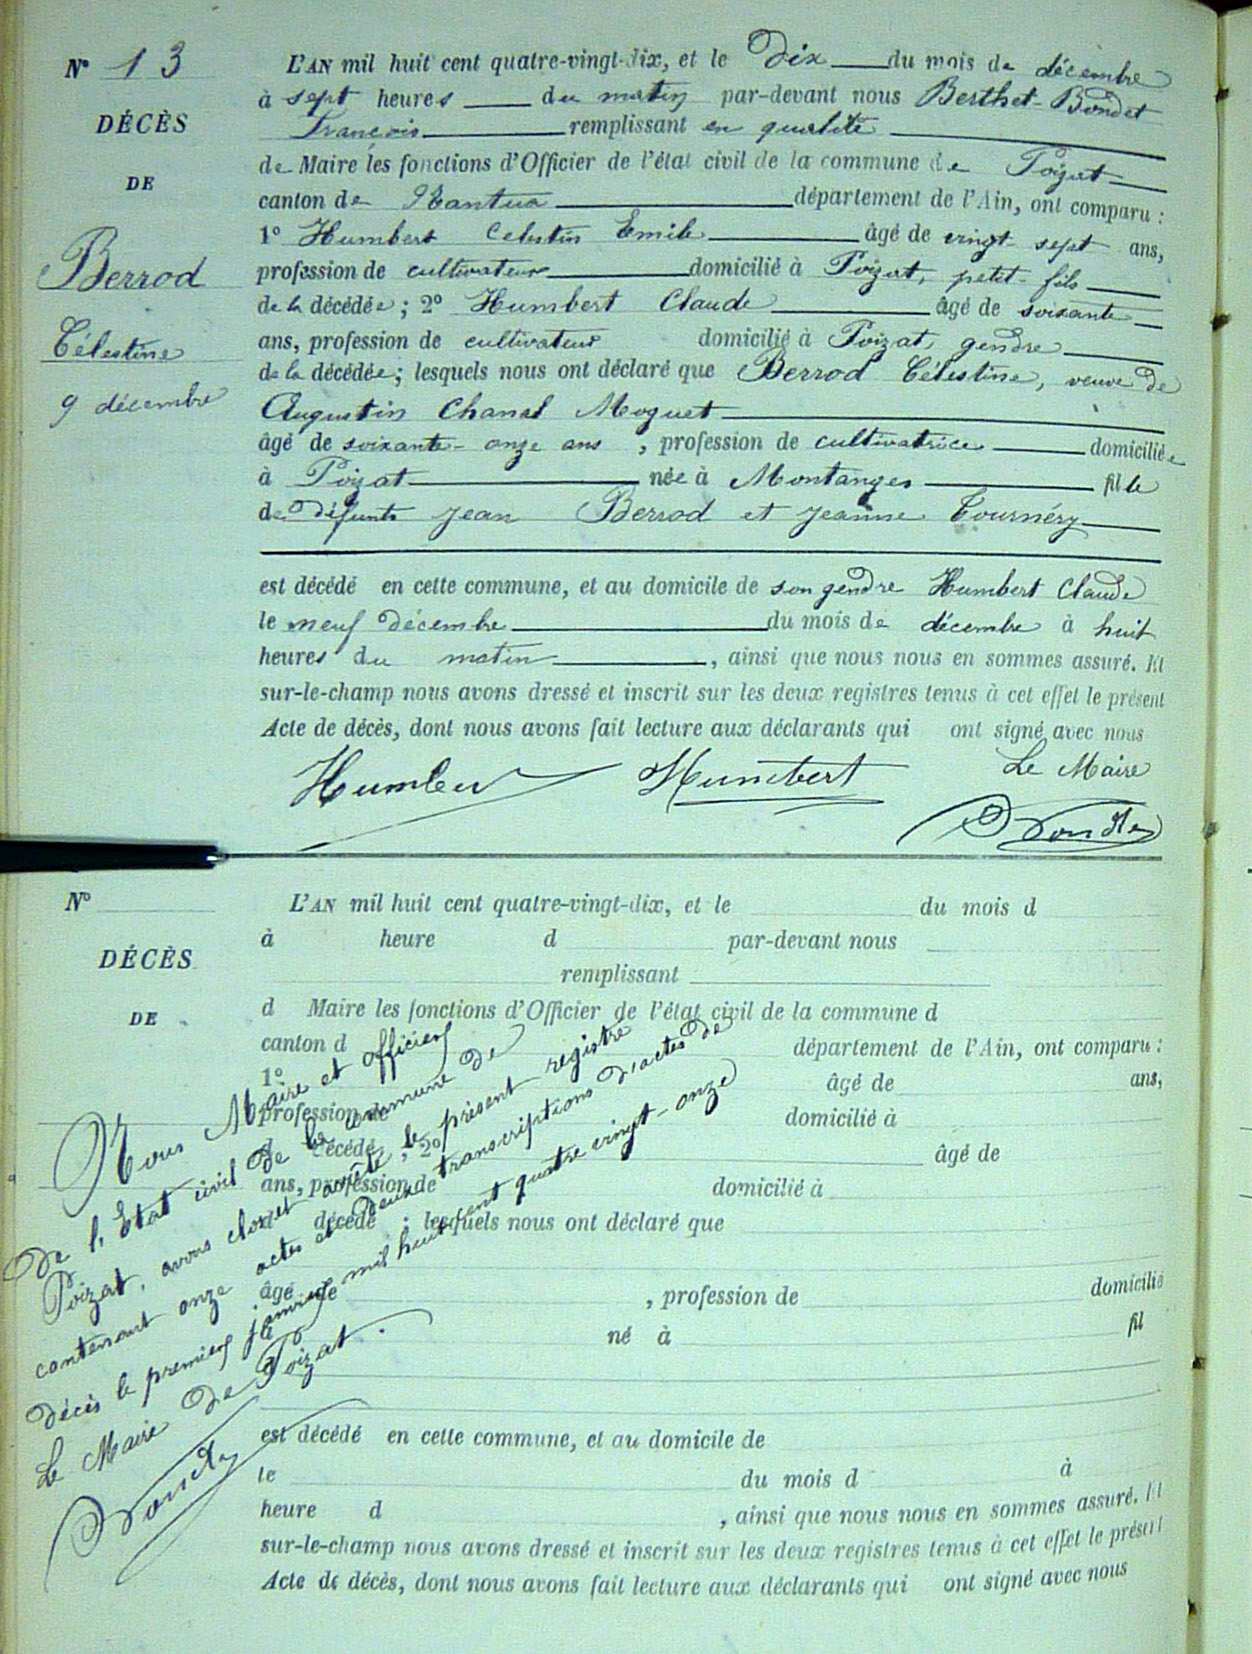 N° 13
DÉCÈS
DE
Berrod
Célestine
9 décembre
L'AN mil huit cent quatre-vingt-dix, et le Dix du mois de décembre
à sept heures du matin par-devant nous Berthet-Bondet
François remplissant en qualité
de Maire les fonctions d'Officier de l'état civil de la commune de Poizat
canton de Nantua département de l'Ain, ont comparu :
1° Humbert Celestin Emile âgé de vingt sept ans,
profession de cultivateur domicilié à Poizat, petit-fils
de la décédée ; 2° Humbert Claude âgé de soixante
ans, profession de cultivateur domicilié à Poizat, gendre
de la décédée ; lesquels nous ont déclaré que Berrod Célestine, veuve de
Augustin Chanel Moguet
âgé de soixante-onze ans , profession de cultivatrice domiciliée
à Poizat née à Montanges fille
de défunts Jean Berrod et Jeanne Tournéry
est décédé en cette commune, et au domicile de son gendre Humbert Claude
le neuf décembre du mois de décembre à huit
heures du matin , ainsi que nous nous en sommes assuré. Et
sur-le-champ nous avons dressé et inscrit sur les deux registres tenus à cet effet le présent
Acte de décès, dont nous avons fait lecture aux déclarants qui ont signé avec nous
Humbert Humbert Le Maire
Bondet
N°
DÉCÈS
DE
L'AN mil huit cent quatre-vingt-dix, et le du mois d
à heure d par-devant nous
remplissant
d Maire les fonctions d'Officier de l'état civil de la commune d
canton d département de l'Ain, ont comparu :
1° âgé de ans,
profession de domicilié à
d décédé ; 2° âgé de
ans, profession de domicilié à
d décédé ; lesquels nous ont déclaré que
âgé de , profession de domicilié
à né à fil
d
est décédé en cette commune, et au domicile de
le du mois d à
heure d , ainsi que nous nous en sommes assuré. Et
sur-le-champ nous avons dressé et inscrit sur les deux registres tenus à cet effet le présent
Acte de décès, dont nous avons fait lecture aux déclarants qui ont signé avec nous
Nous Maire et officier
de l'Etat civil de la commune de
Poizat, avons clos et arrêté le présent registre
contenant onze actes et deux transcriptions d'actes de
décès le premier janvier mil huit cent quatre vingt-onze
Le Maire de Poizat.
Bondet